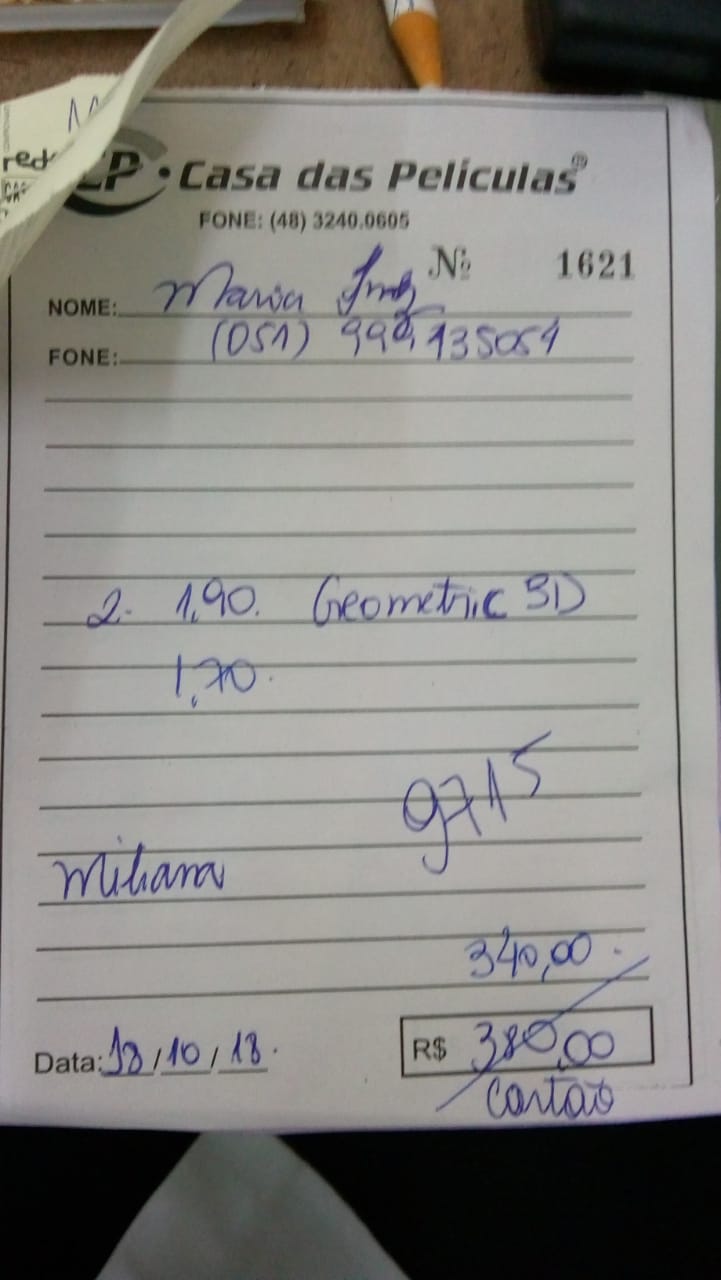 CP • Casa das Películas®
FONE: (48) 3240.0605
Nº 1621
NOME: Maria
FONE: (051)
2. 1,90. Geometric 3D
1,70.
9715
340,00.
Data: 18/10/18.
R$ 380,00
Cartão